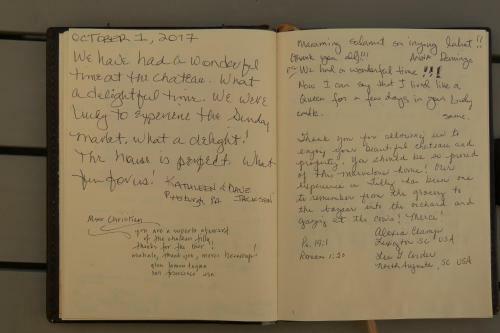 OCTOBER 1, 2017
We have had a wonderful
time at the chateau. What
a delightful time. We were
lucky to experience the Sunday
market, what a delight!
The house is perfect. What
fun for us!
KATHLEEN & DAVE
Pittsburgh PA JACKSON
Christian
you are a superb steward
of the chateau
thanks for the tour!
mahalo, thank you, merci beaucoup!
san francisco usa
Maraming salamat sa inyong lahat!!
(thank you all)!!!
We had a wonderful time!!!
Now I can say that I lived like a
Queen for a few days in your lovely
castle.
Thank you for allowing us to
enjoy your beautiful chateau and
property. You should be so proud
of this marvelous home! Our
experience in has been one
to remember from the grocery to
the into the orchard and
gazing at the cows! Merci!
Ps. 19:1
Lexington SC USA
Romans 1:20
North Augusta, SC USA